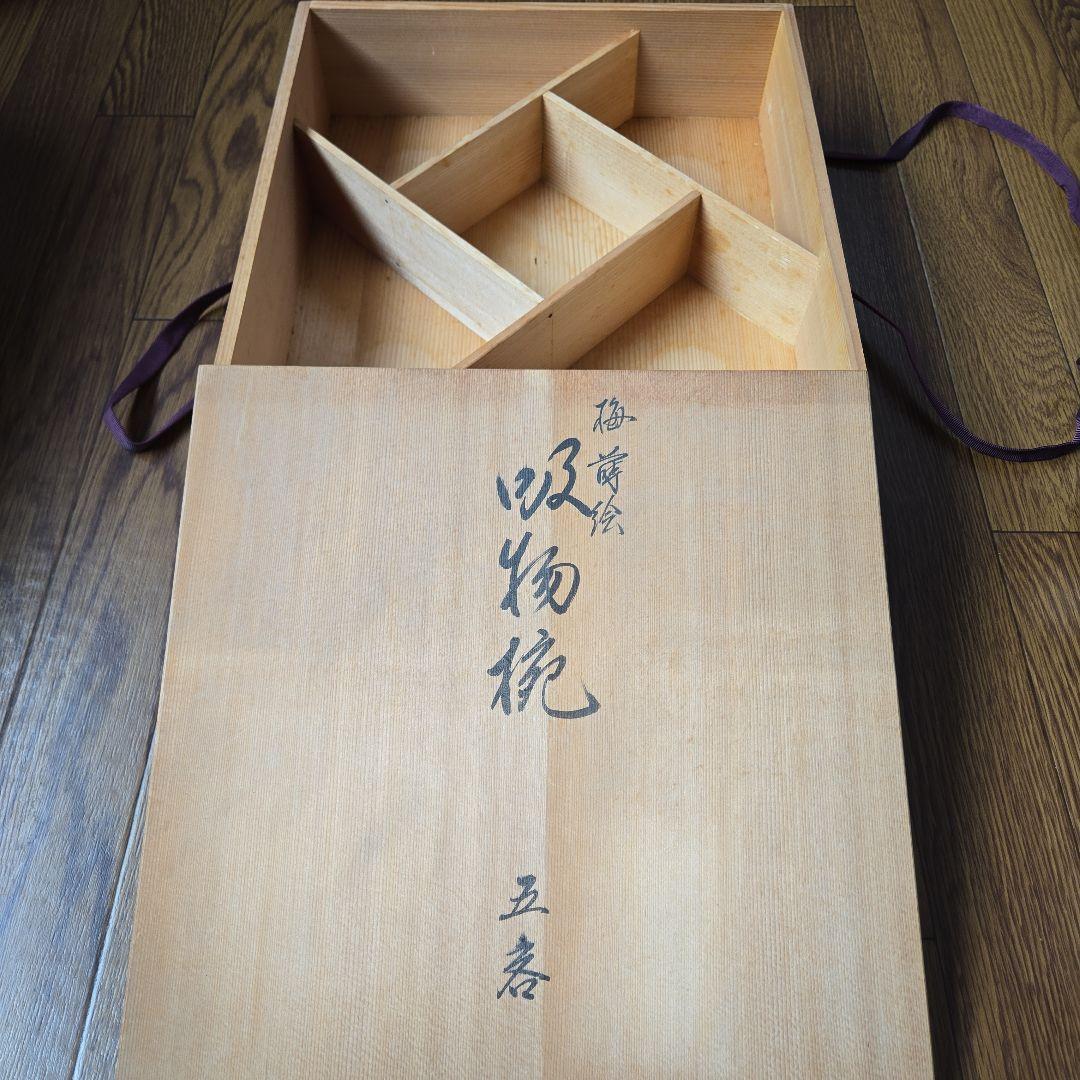 梅蒔絵
吸物椀
五客